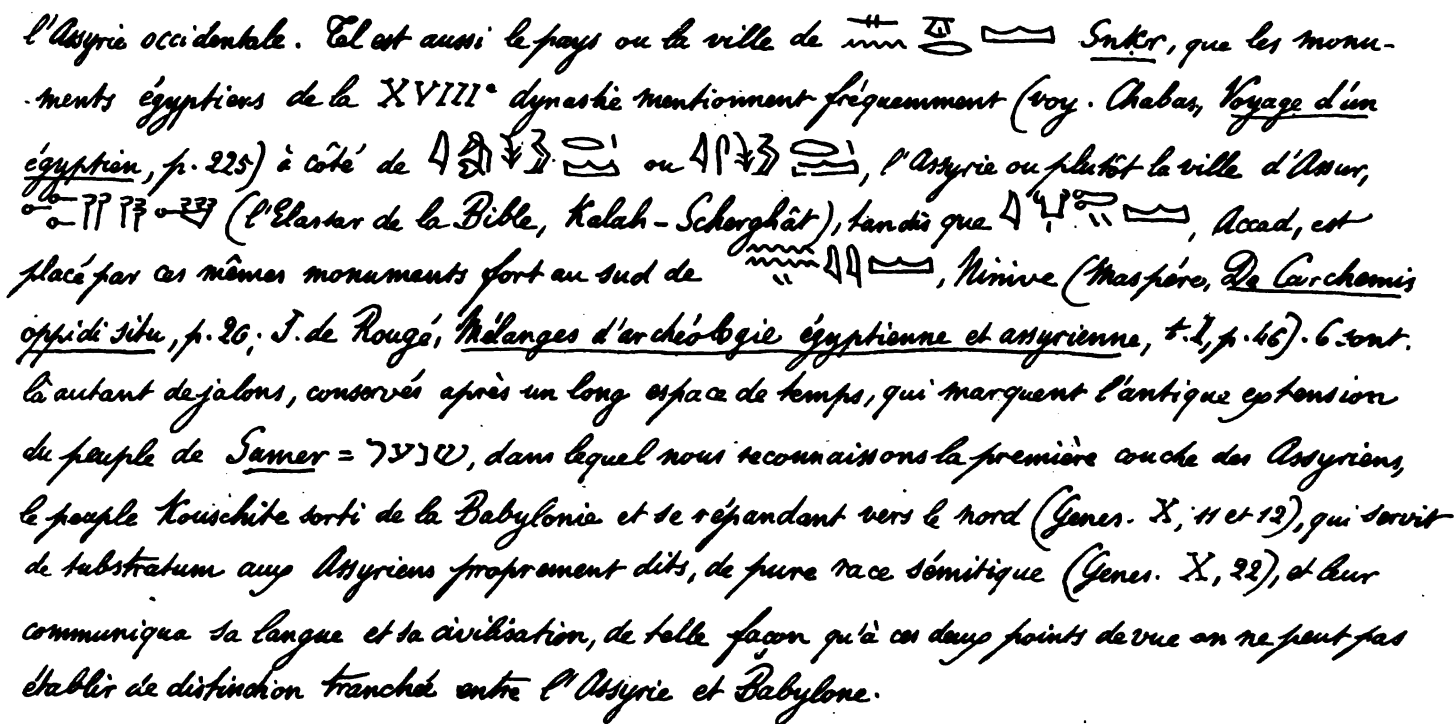 l'Assyrie occidentale. Tel est aussi le pays ou la ville de Snkr, que les monu-
ments égyptiens de la XVIIIe dynastie mentionnent fréquemment (voy. Chabas, Voyage d'un
égyptien, p. 225) à côté de ou , l'Assyrie ou plutôt la ville d'Assur,
(l'Elassar de la Bible, Kalah-Scherghât), tandis que , Accad, est
placé par ces mêmes monuments fort au sud de , Ninive (Maspéro, De Carchemis
oppidi situ, p. 26; J. de Rougé, Mélanges d'archéologie égyptienne et assyrienne, t. I, p. 46). Ce sont
là autant de jalons, conservés après un long espace de temps, qui marquent l'antique extension
du peuple de Sumer = שנער, dans lequel nous reconnaissons la première couche des Assyriens,
le peuple Kouschite sorti de la Babylonie et se répandant vers le nord (Genes. X, 11 et 12), qui servit
de substratum aux Assyriens proprement dits, de pure race sémitique (Genes. X, 22), et leur
communiqua sa langue et sa civilisation, de telle façon qu'à ces deux points de vue on ne peut pas
établir de distinction tranchée entre l'Assyrie et Babylone.